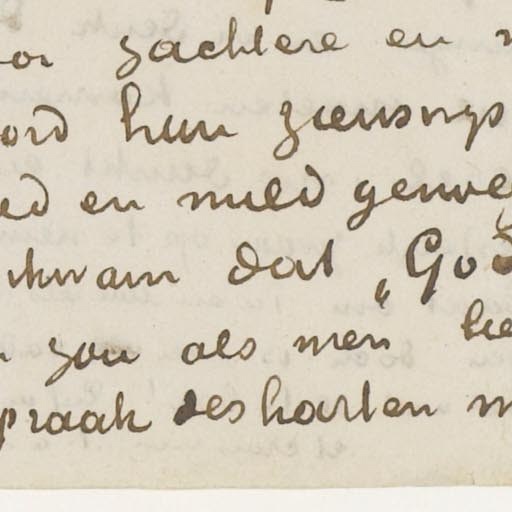 oor zachtere en
oord hun zienswys
ed en mild genoeg
kwam dat „God
zou als men
spraak des harten